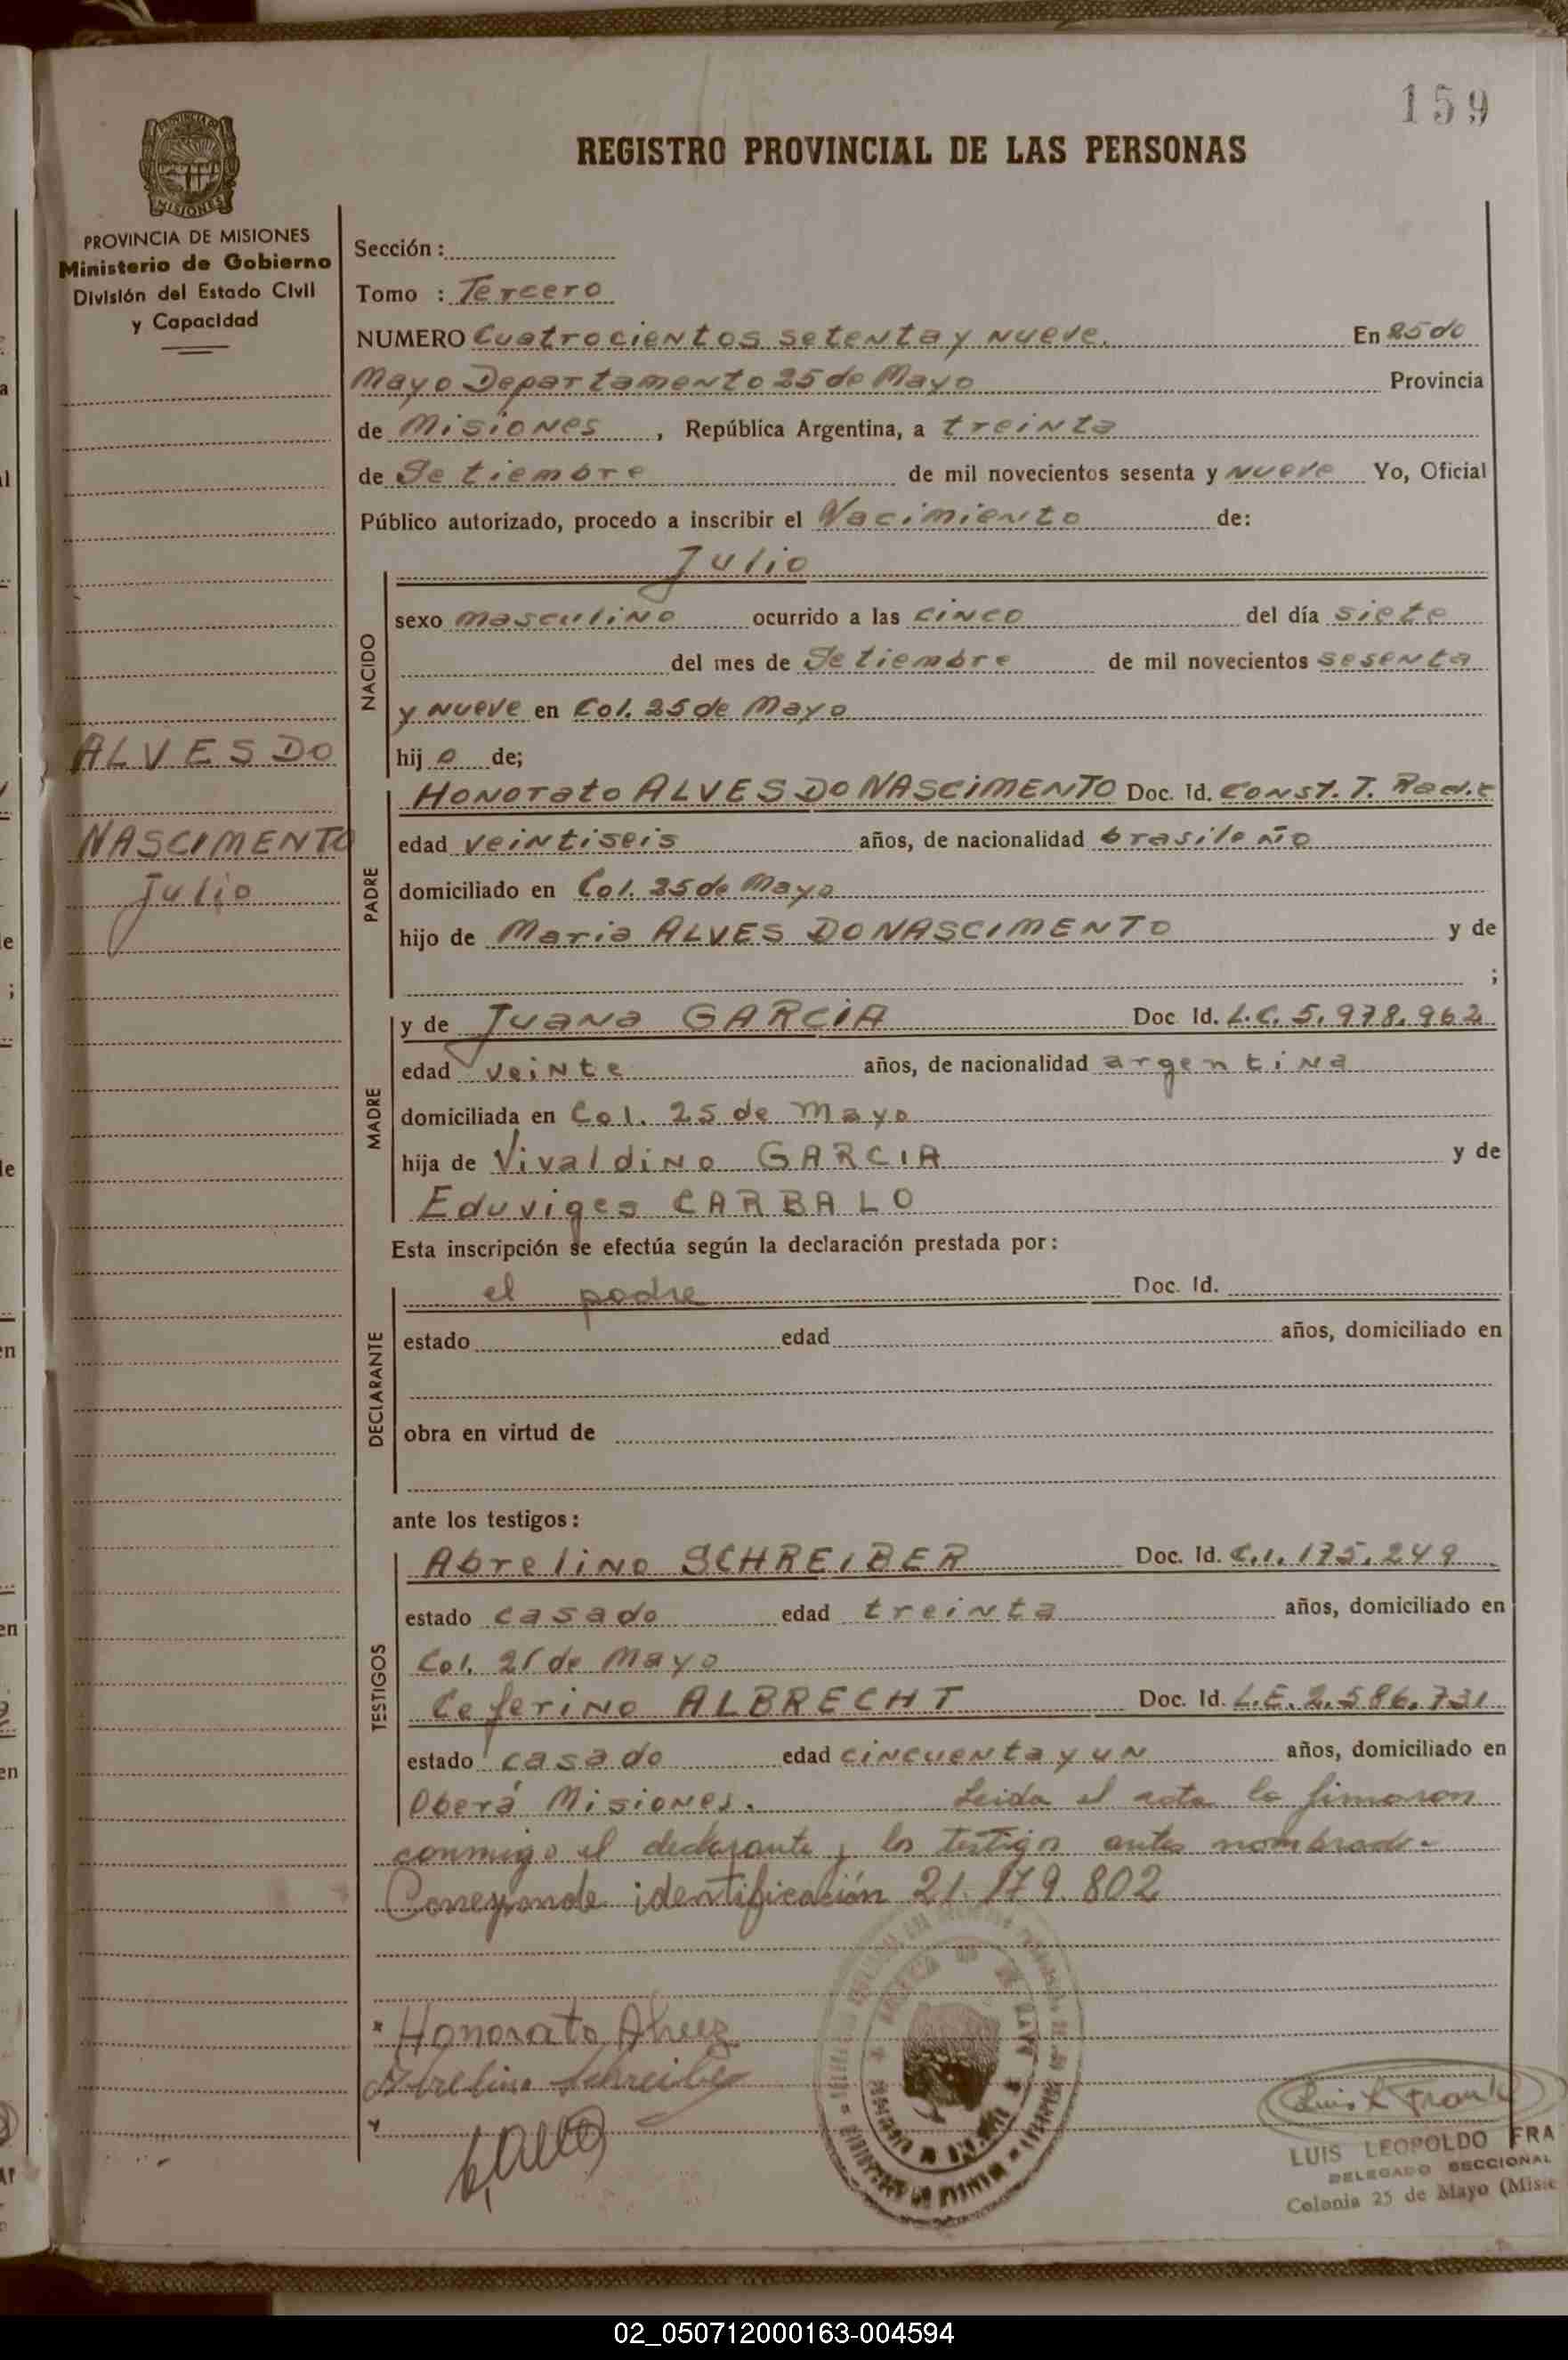 159
REGISTRO PROVINCIAL DE LAS PERSONAS
MISIONES
PROVINCIA DE MISIONES
Ministerio de Gobierno
División del Estado Civil
y Capacidad
ALVES DO
NASCIMENTO
Julio
Sección :
Tomo : Tercero
NUMERO Cuatrocientos setenta y nueve. En 25 de
Mayo Departamento 25 de Mayo Provincia
de Misiones , República Argentina, a treinta
de Setiembre de mil novecientos sesenta y nueve Yo, Oficial
Público autorizado, procedo a inscribir el Nacimiento de:
NACIDO
Julio
sexo masculino ocurrido a las cinco del día siete
del mes de Setiembre de mil novecientos sesenta
y nueve en Col. 25 de Mayo
hij o de;
PADRE
Honorato ALVES DO NASCIMENTO Doc. Id. Const. T. Rad.
edad veintiseis años, de nacionalidad brasileño
domiciliado en Col. 25 de Mayo
hijo de Maria ALVES DO NASCIMENTO y de
;
MADRE
y de Juana GARCIA Doc Id. L.C. 5.978.962
edad veinte años, de nacionalidad argentina
domiciliada en Col. 25 de Mayo
hija de Vivaldino GARCIA y de
Eduviges CARBALO
Esta inscripción se efectúa según la declaración prestada por:
DECLARANTE
el padre Doc. Id.
estado edad años, domiciliado en
obra en virtud de
ante los testigos:
TESTIGOS
Abrelino SCHREIBER Doc. Id. C.I. 175.249
estado casado edad treinta años, domiciliado en
Col. 25 de Mayo
Ceferino ALBRECHT Doc. Id. L.E. 2.586.731
estado casado edad cincuenta y un años, domiciliado en
Oberá Misiones. Leida el acta la firmaron
conmigo el declarante y los testigos antes nombrados
Corresponde identificación 21.179.802
Honorato Alvez
Abrelino Schreiber
Luis L Frank
LUIS LEOPOLDO FRA
DELEGADO SECCIONAL
Colonia 25 de Mayo (Misio
02_050712000163-004594